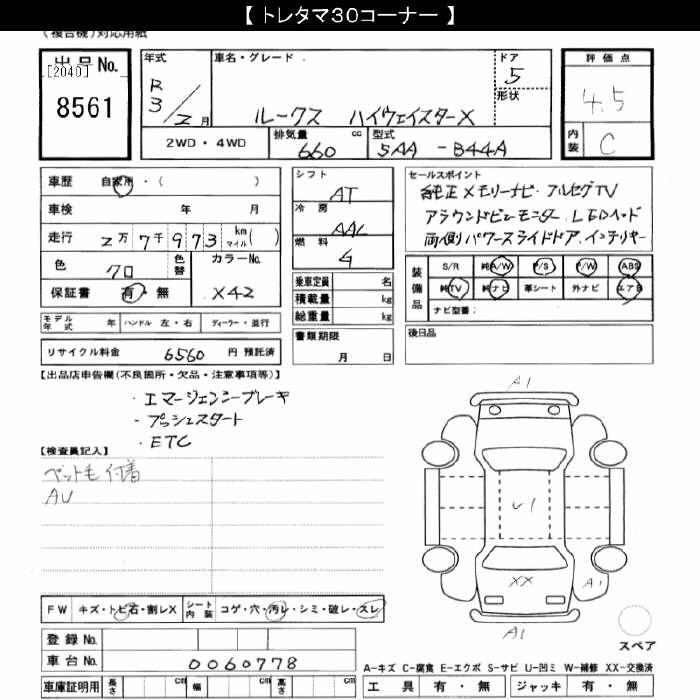 【 トレタマ３０コーナー 】
（複合機）対応用紙
出品No. 年式 車名・グレード ドア 評価点
[2040] R 5
8561 3/2月 ルークス ハイウェイスターX 形状 4.5
2WD・4WD 排気量 cc 型式 内装 C
660 5AA - B44A
車歴 自家用・( ) シフト AT セールスポイント
車検 年 月 冷房 AAC 純正メモリーナビ・フルセグTV
走行 2万7千973 km マイル( ) アラウンドビューモニター、LEDヘッド
色 クロ 色替 カラーNo. 燃料 G 両側パワースライドドア、インテリキー
保証書 有・無 X42 乗車定員 名 装備品 S/R 純A/W P/S P/W ABS
積載量 kg 純TV 純ナビ 革シート 外ナビ エアB
総重量 kg ナビ型番：
モデル年式 年 ハンドル 左・右 ディーラー・並行 書類期限 後日品
リサイクル料金 6560 円 預託済 月 日
【出品店申告欄(不良箇所・欠品・注意事項等)】
・エマージェンシーブレーキ
・プッシュスタート
・ETC
【検査員記入】
ペット毛付着
AU
A1
U1
XX
A1
A1
スペア
FW キズ・トビ石・割レX シート内装 コゲ・穴・汚レ・シミ・破レ・スレ
登録No.
車台No. 0060778
A-キズ C-腐食 E-エクボ S-サビ U-凹ミ W-補修 XX-交換済
車庫証明用 長さ cm 幅 cm 高さ cm 工具 有・無 ジャッキ 有・無